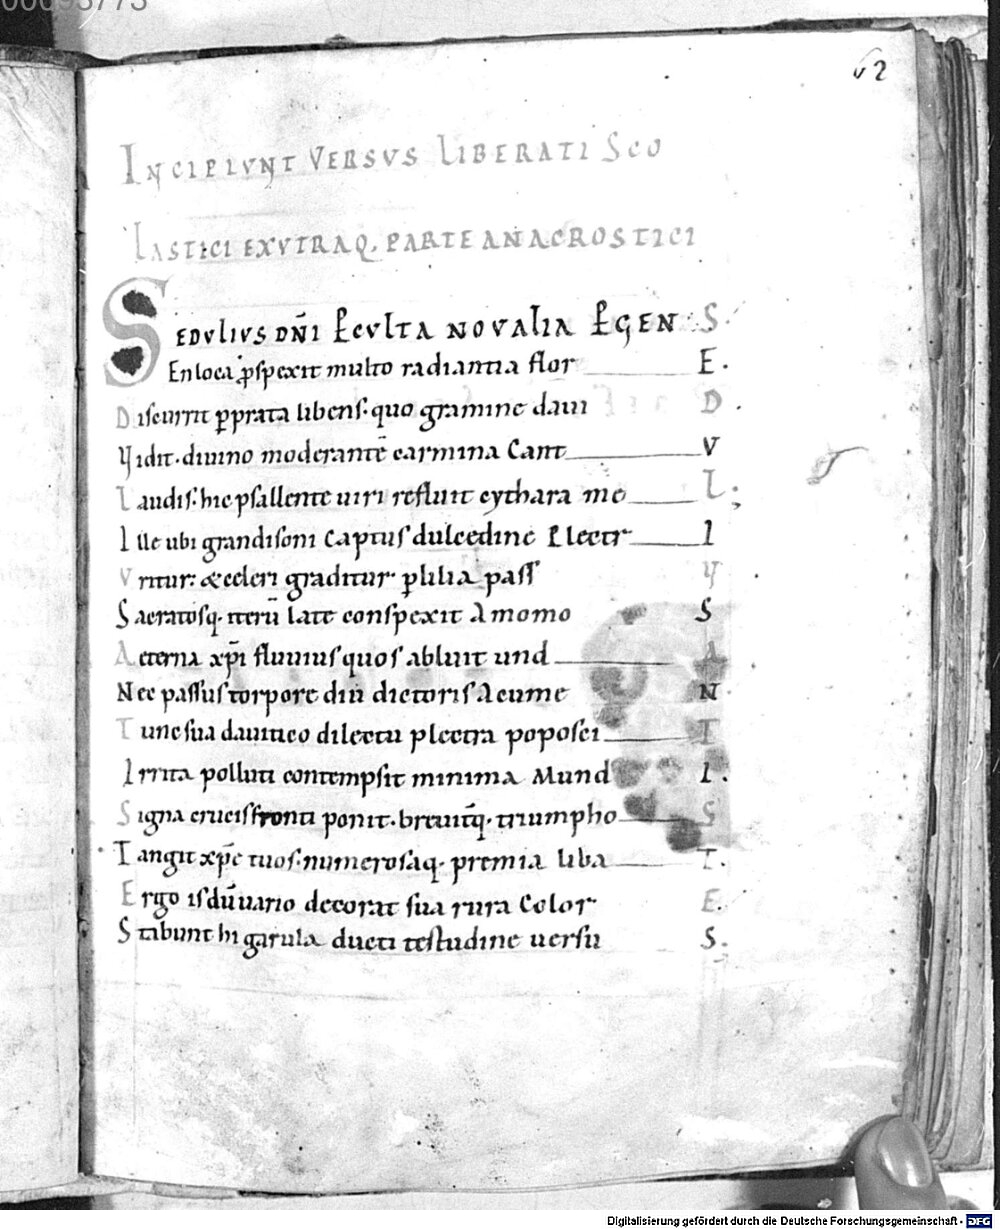 00095773
62
INCIPIUNT VERSUS LIBERATI SCO
LASTICI EX UTRAQ. PARTE ANACROSTICI
SEDULIUS DÑI P CULTA NOVALIA PGEN S.
En loca pspexit multo radiantia flor E.
Discurrit p prata libens. quo gramine daui D.
Vidit. diuino moderantē carmina Cant V
Laudis. hic psallente uiri refluit cythara me L;
Ille ubi grandisoni Captus dulcedine Plectr I
Vritur: & celeri graditur p lilia pass V
Sacratosq. iterū late conspexit Amomo S
Aeterna xp̄i fluuius quos abluit und A
Nec passus torpore diu dictoris Acume N
Tunc sua dauitico dilectu plectra poposci T
Irrita polluti contempsit minima Mund I.
Signa crucis fronti ponit. triumpho S
Tangit xp̄e tuos. numerosaq. premia liba T.
Ergo is dū uario decorat sua rura Color E.
Stabunt hi garula ducti testudine uersu S.
Digitalisierung gefördert durch die Deutsche Forschungsgemeinschaft - DFG